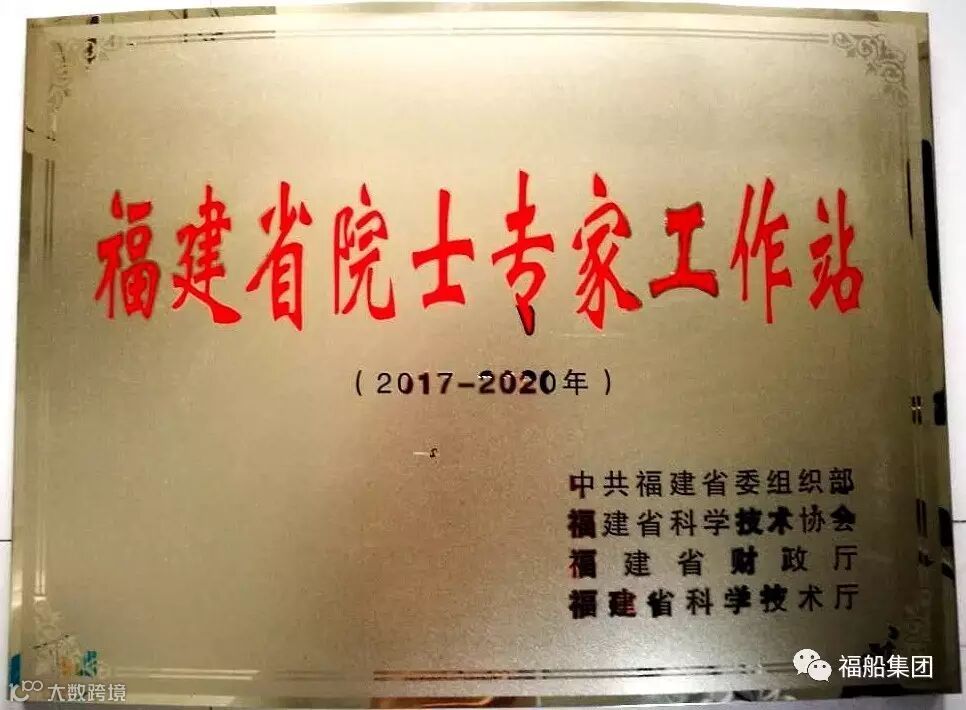 福建省院士专家工作站
（2017-2020年）
中共福建省委组织部
福建省科学技术协会
福建省财政厅
福建省科学技术厅
福船集团
大数跨境